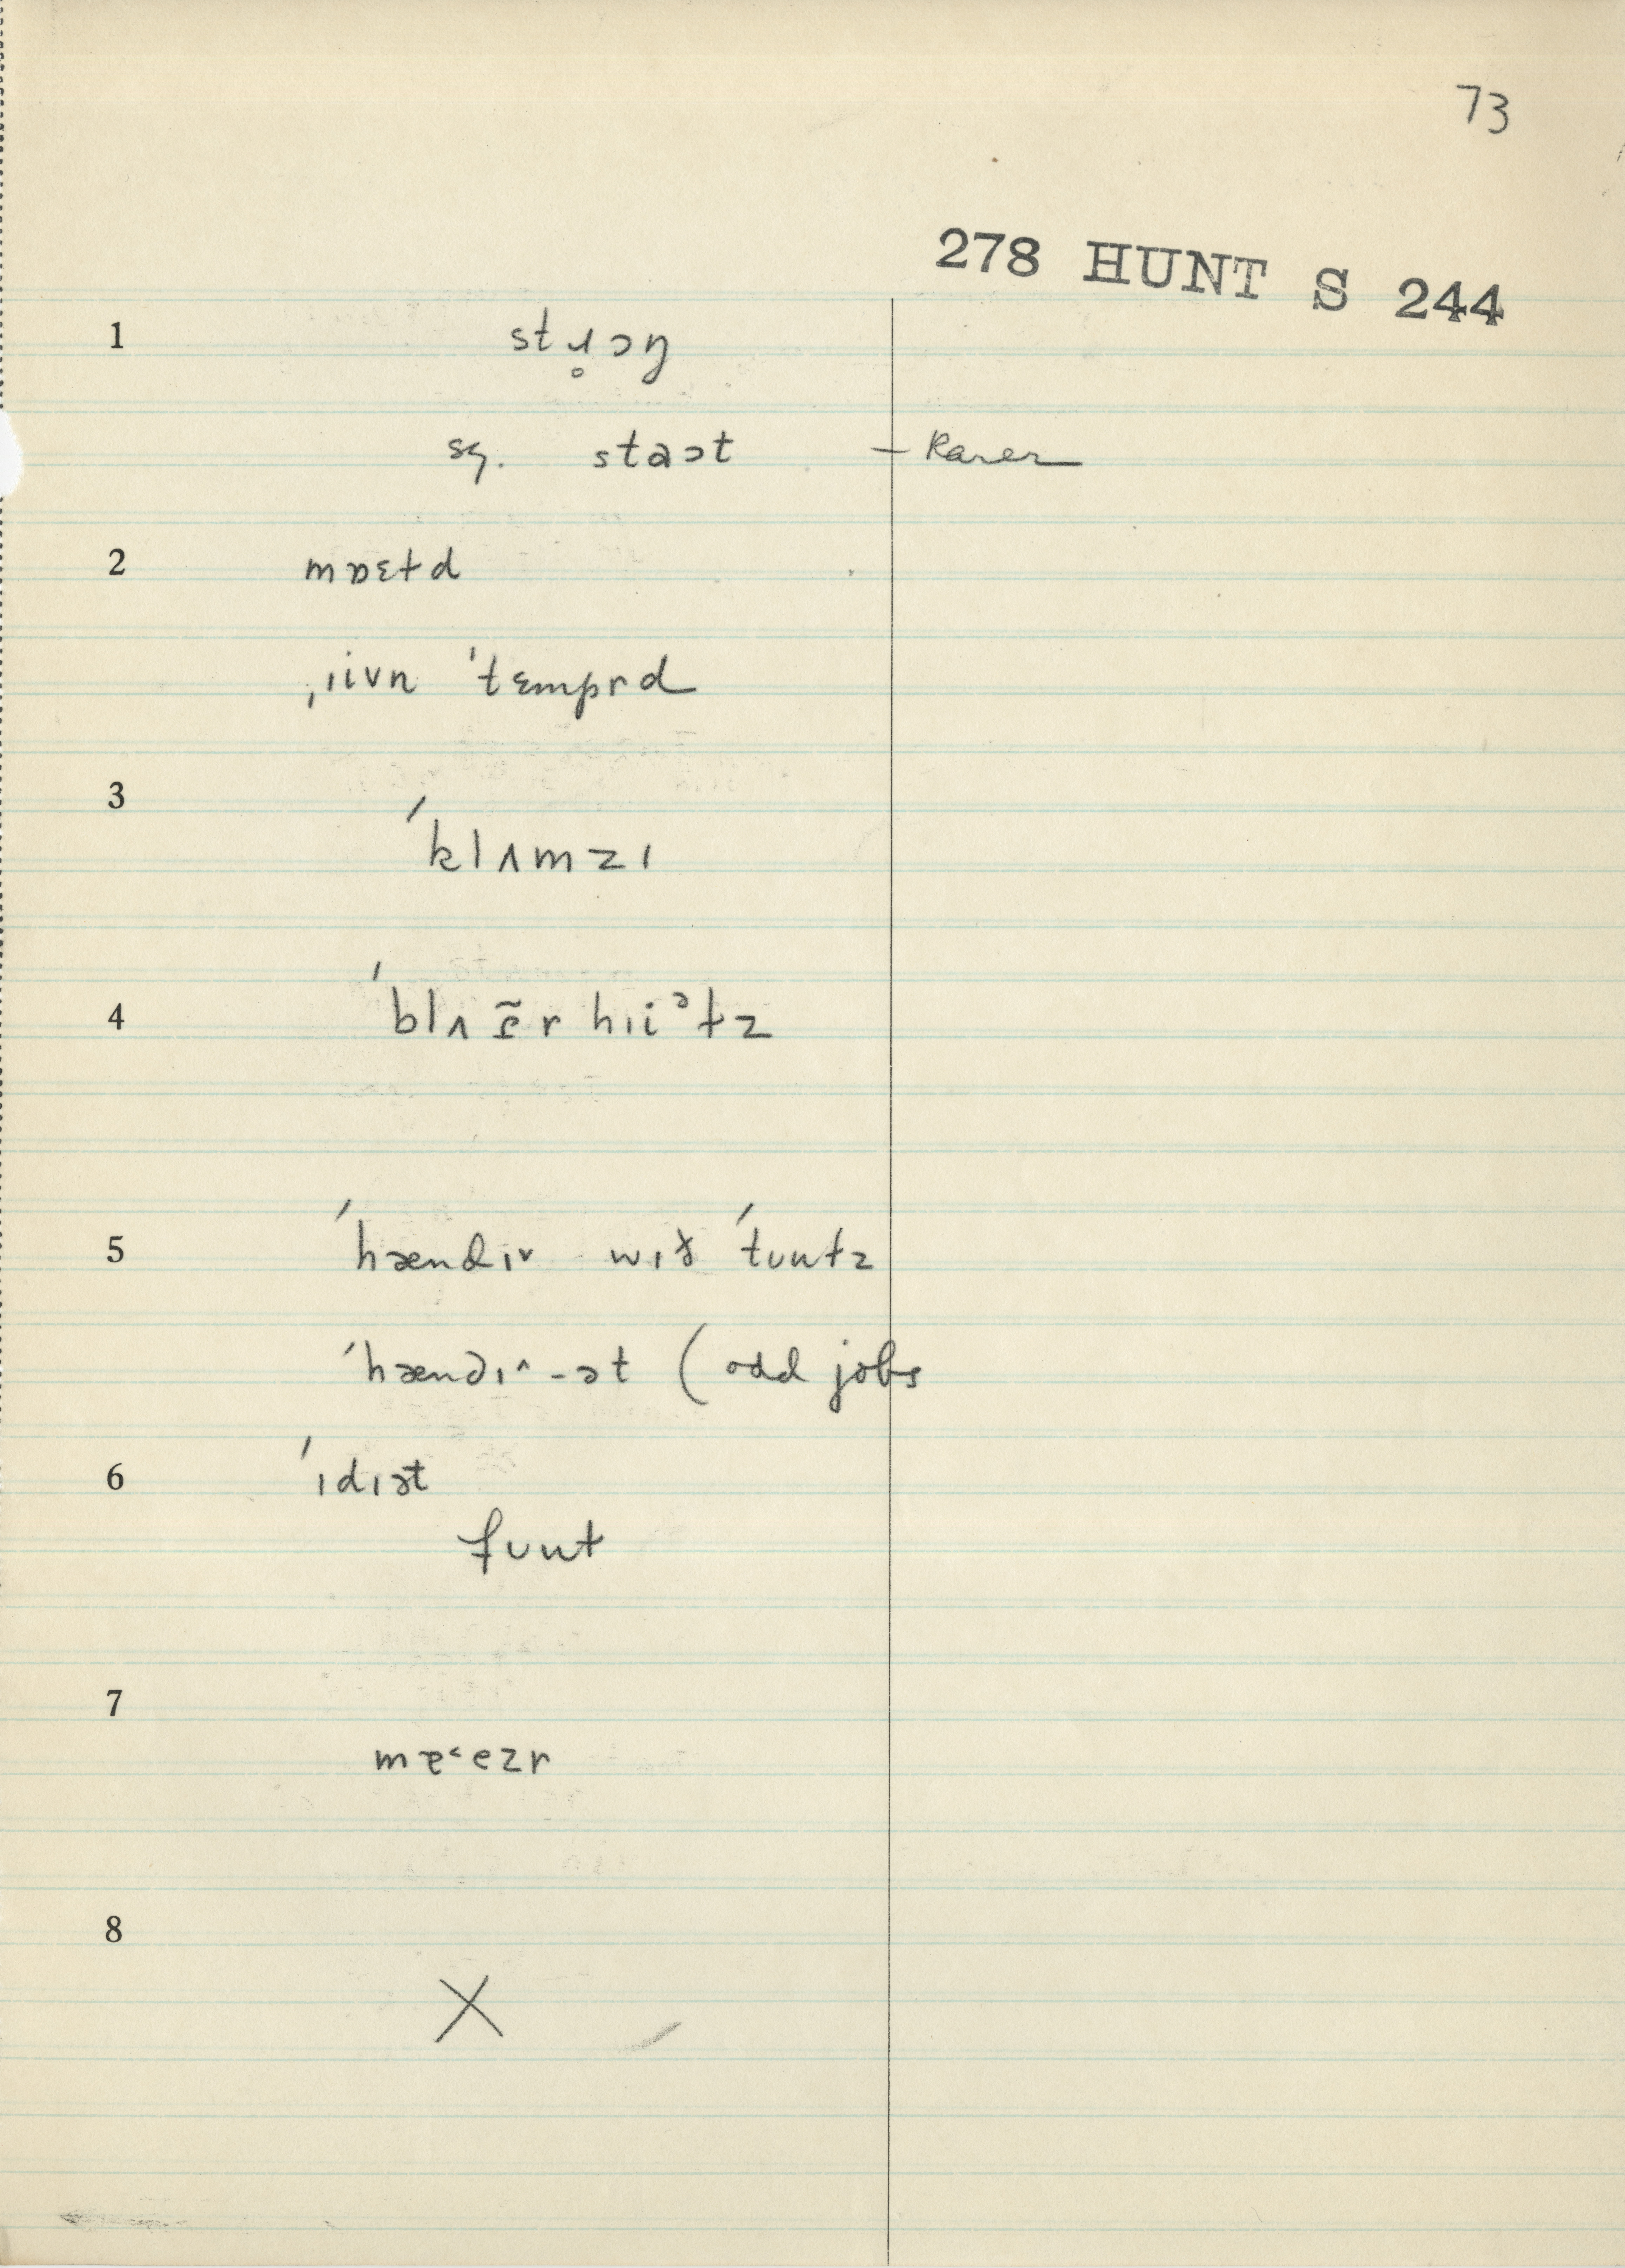 73
278 HUNT S 244
1 stɹ̥ɔŋ
sg. staɔt – Rarer
2 mɒɛɫd
ˌiivn ˈtɛmprd
3 ˈklʌmzɪ
4 ˈblʌ r hɪiᵊɫz
5 ˈhændɪ˅ wɪð ˈtuuɫz
ˈhændɪ˄-ət (odd jobs
6 ˈɪdɪət
fuuɫ
7 mɐ˂ezr
8 X